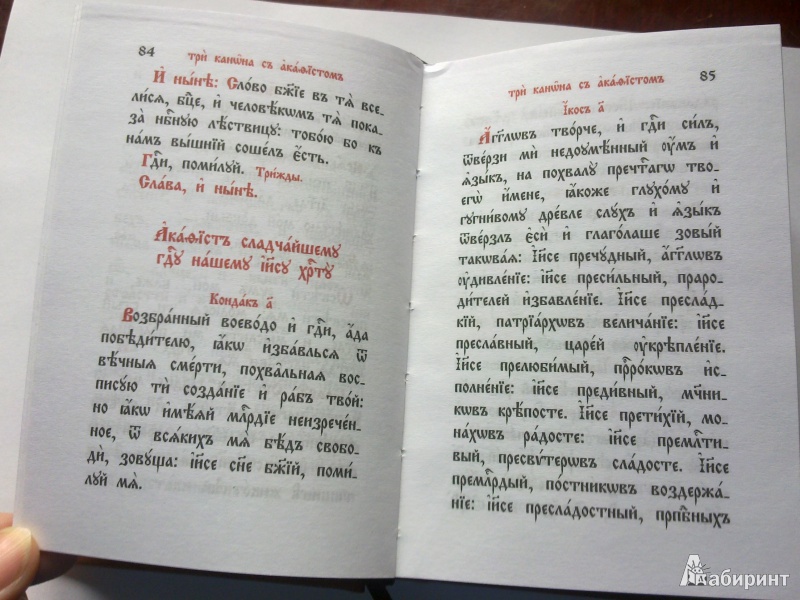 84
трѝ канѡ́на съ а҆ка́ѳїстомъ
И҆ ны́нѣ: Сло́во бж҃їе въ тѧ̀ всє-
ли́сѧ, бц҃е, и҆ человѣ́кѡмъ тѧ̀ пока-
за̀ нб҃ную лѣ́ствицу: тобо́ю бо къ
на́мъ вы́шнїй соше́лъ є҆́сть.
Гдⷭ҇и, поми́луй. Три́жды.
Сла́ва, и҆ ны́нѣ.
А҆ка́ѳїстъ сладча́йшему
гдⷭ҇у на́шему і҆и҃су хрⷭ҇ту̀
Конда́къ а҃
Возбра́нный воево́до и҆ гдⷭ҇и, а҆́да
побѣди́телю, ꙗ҆́кѡ и҆зба́вльсѧ ѿ
вѣ́чныѧ сме́рти, похва̑льнаѧ вос-
писꙋ́ю тѝ созда́нїе и҆ ра́бъ тво́й:
но ꙗ҆́кѡ и҆мѣ́ѧй млⷭ҇рдїе неизрече́н-
ное, ѿ всѧ́кихъ мѧ̀ бѣ́дъ свобо-
дѝ, зову́ща: і҆и҃се сн҃е бж҃їй, поми́-
луй мѧ̀.
трѝ канѡ́на съ а҆ка́ѳїстомъ
85
І҆́косъ а҃
А҆́гг҃лѡвъ тво́рче, и҆ гдⷭ҇и си́лъ,
ѿве́рзи мѝ недоумѣ́нный ѹ҆́мъ и҆
ѧ҆зы́къ, на похвалу̀ пречⷭ҇тагѡ тво-
егѡ̀ и҆́мене, ꙗ҆́коже глухо́му и҆
гугни́вому дре́вле слу́хъ и҆ ѧ҆зы́къ
ѿве́рзлъ є҆сѝ и҆ глаго́лаше зовы́й
такѡва́ѧ: І҆и҃се пречу́дный, а҆́гг҃лѡвъ
ѹ҆дивле́нїе: і҆и҃се преси́льный, праро-
ди́телей и҆збавле́нїе. І҆и҃се пресла́д-
кїй, патрїа́рхѡвъ велича́нїе: і҆и҃се
пресла́вный, царе́й ѹ҆крѣпле́нїе.
І҆и҃се прелюби́мый, прⷪ҇ро́кѡвъ и҆с-
полне́нїе: і҆и҃се преди́вный, мч҃ни-
кѡвъ крѣ́посте. І҆и҃се прети́хїй, мо-
на́хѡвъ ра́досте: і҆и҃се премлⷭ҇ти-
вый, пресви́терѡвъ сла́досте. І҆и҃се
премлⷭ҇рдый, по́стникѡвъ воздержа́-
нїе: і҆и҃се пресла́достный, прпⷣбныхъ
Лабиринт